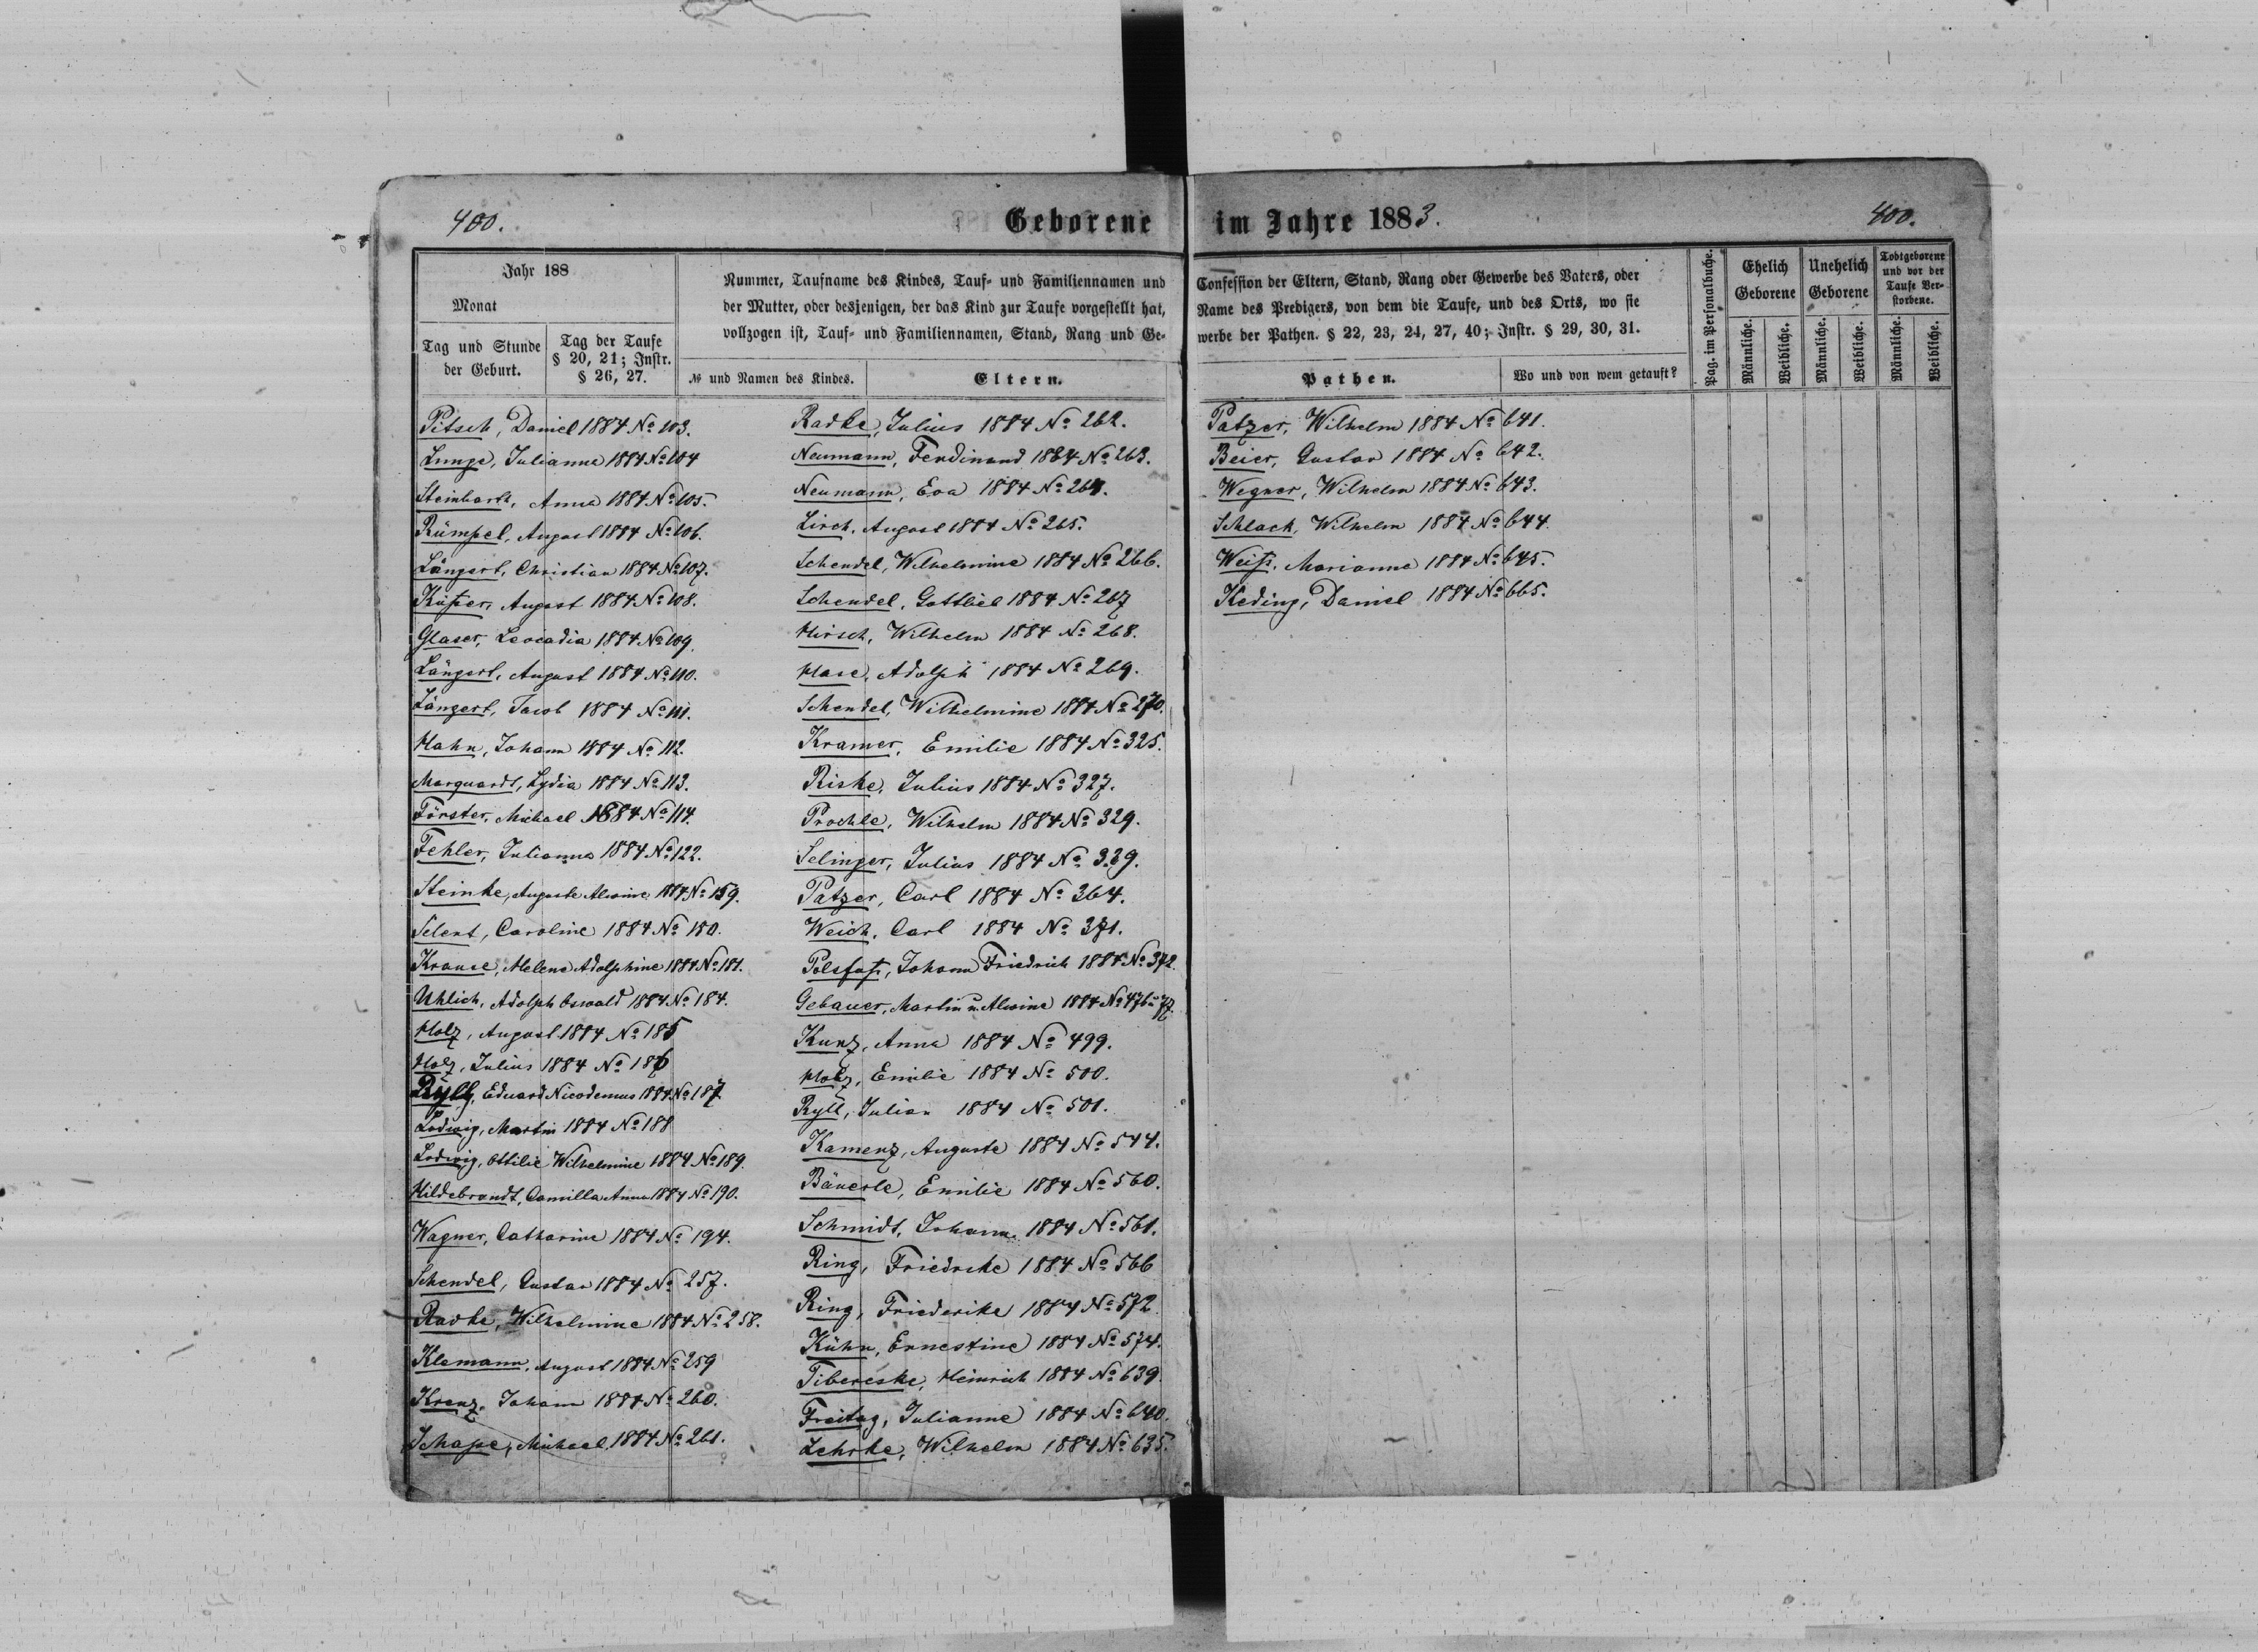 400.
Geborene im Jahre 1883.
400.
Jahr 188
Monat
Tag und Stunde
der Geburt.
Tag der Taufe
§ 20, 21; Instr.
§ 26, 27.
Nummer, Taufname des Kindes, Tauf- und Familiennamen und
der Mutter, oder desjenigen, der das Kind zur Taufe vorgestellt hat,
vollzogen ist, Tauf- und Familiennamen, Stand, Rang und Ge-
№ und Namen des Kindes.
Eltern.
Confession der Eltern, Stand, Rang oder Gewerbe des Vaters, oder
Name des Predigers, von dem die Taufe, und des Orts, wo sie
werbe der Pathen. § 22, 23, 24, 27, 40; Instr. § 29, 30, 31.
Pathen.
Wo und von wem getauft?
Pag. im Personalbuche.
Ehelich
Geborene
Männliche.
Weibliche.
Unehelich
Geborene
Männliche.
Weibliche.
Todtgeborene
und vor der
Taufe Ver-
storbene.
Männliche.
Weibliche.
Pitsch, Daniel 1884 № 103.
Lunge, Julianne 1884 № 104
Steinbarth, Anna 1884 № 105.
Rümpel, August 1884 № 106.
Längert, Christian 1884 № 107.
Küßer, August 1884 № 108.
Glaser, Leocadia 1884 № 109.
Längert, August 1884 № 110.
Längert, Jacob 1884 № 111.
Hahn, Johann 1884 № 112.
Marquardt, Lydia 1884 № 113.
Förster, Michael 1884 № 114.
Fehler, Julianna 1884 № 122.
Steinke, Auguste Alwine 1884 № 159.
Selent, Caroline 1884 № 180.
Krause, Helene Adolphine 1884 № 181.
Uhlich, Adolph Oswald 1884 № 184.
Holz, August 1884 № 185
Holz, Julius 1884 № 186
Ryll, Eduard Nicodemus 1884 № 187
Lodwig, Martin 1884 № 188
Lodwig, Ottilie Wilhelmine 1884 № 189.
Hildebrandt, Camilla Anna 1884 № 190.
Wagner, Catharine 1884 № 194.
Schendel, Gustav 1884 № 257.
Radke, Wilhelmine 1884 № 258.
Klemann, August 1884 № 259
Krenz, Johann 1884 № 260.
Schape, Michael 1884 № 261.
Radke, Julius 1884 № 262.
Neumann, Ferdinand 1884 № 263.
Neumann, Eva 1884 № 264.
Lirch, August 1884 № 265.
Schendel, Wilhelmine 1884 № 266.
Schendel, Gottlieb 1884 № 267
Hirsch, Wilhelm 1884 № 268.
Hase, Adolph 1884 № 269.
Schendel, Wilhelmine 1884 № 270.
Kramer, Emilie 1884 № 325.
Riske, Julius 1884 № 327.
Prochle, Wilhelm 1884 № 329.
Selinger, Julius 1884 № 339.
Patzer, Carl 1884 № 364.
Weich, Carl 1884 № 371.
Polsfuß, Johann Friedrich 1884 № 372.
Gebauer, Martin u. Alwine 1884 № 476 u 77.
Kunz, Anna 1884 № 499.
Holz, Emilie 1884 № 500.
Ryll, Julian 1884 № 501.
Kamenz, Auguste 1884 № 544.
Bäuerle, Emilie 1884 № 560.
Schmidt, Johann 1884 № 561.
Ring, Friedrike 1884 № 566
Ring, Friederike 1884 № 572
Kühn, Ernestine 1884 № 574.
Tibereske, Heinrich 1884 № 639.
Freitag, Julianne 1884 № 640.
Lehrke, Wilhelm 1884 № 635.
Patzer, Wilhelm 1884 № 641.
Beier, Gustav 1884 № 642.
Wegner, Wilhelm 1884 № 643.
Schlack, Wilhelm 1884 № 644.
Weiß, Marianne 1884 № 645.
Keding, Daniel 1884 № 665.